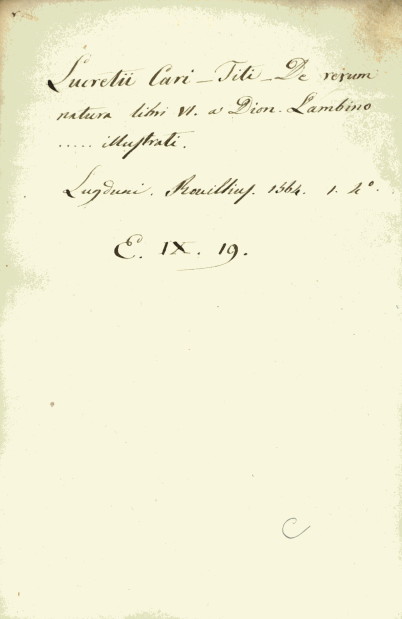 Lucretii Cari - Titi - De rerum
natura libri VI. a Dion. Lambino
..... illustrati.
Lugduni. Rouillius. 1564. 1. 4°.
E. IX. 19.
C